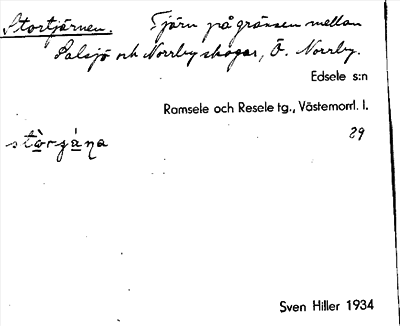 Stortjärnen. Tjärn på gränsen mellan
Salsjö och Norrby skogar, Ö. Norrby.
Edsele s:n
Ramsele och Resele tg., Västernorrl. l.
89
Sven Hiller 1934